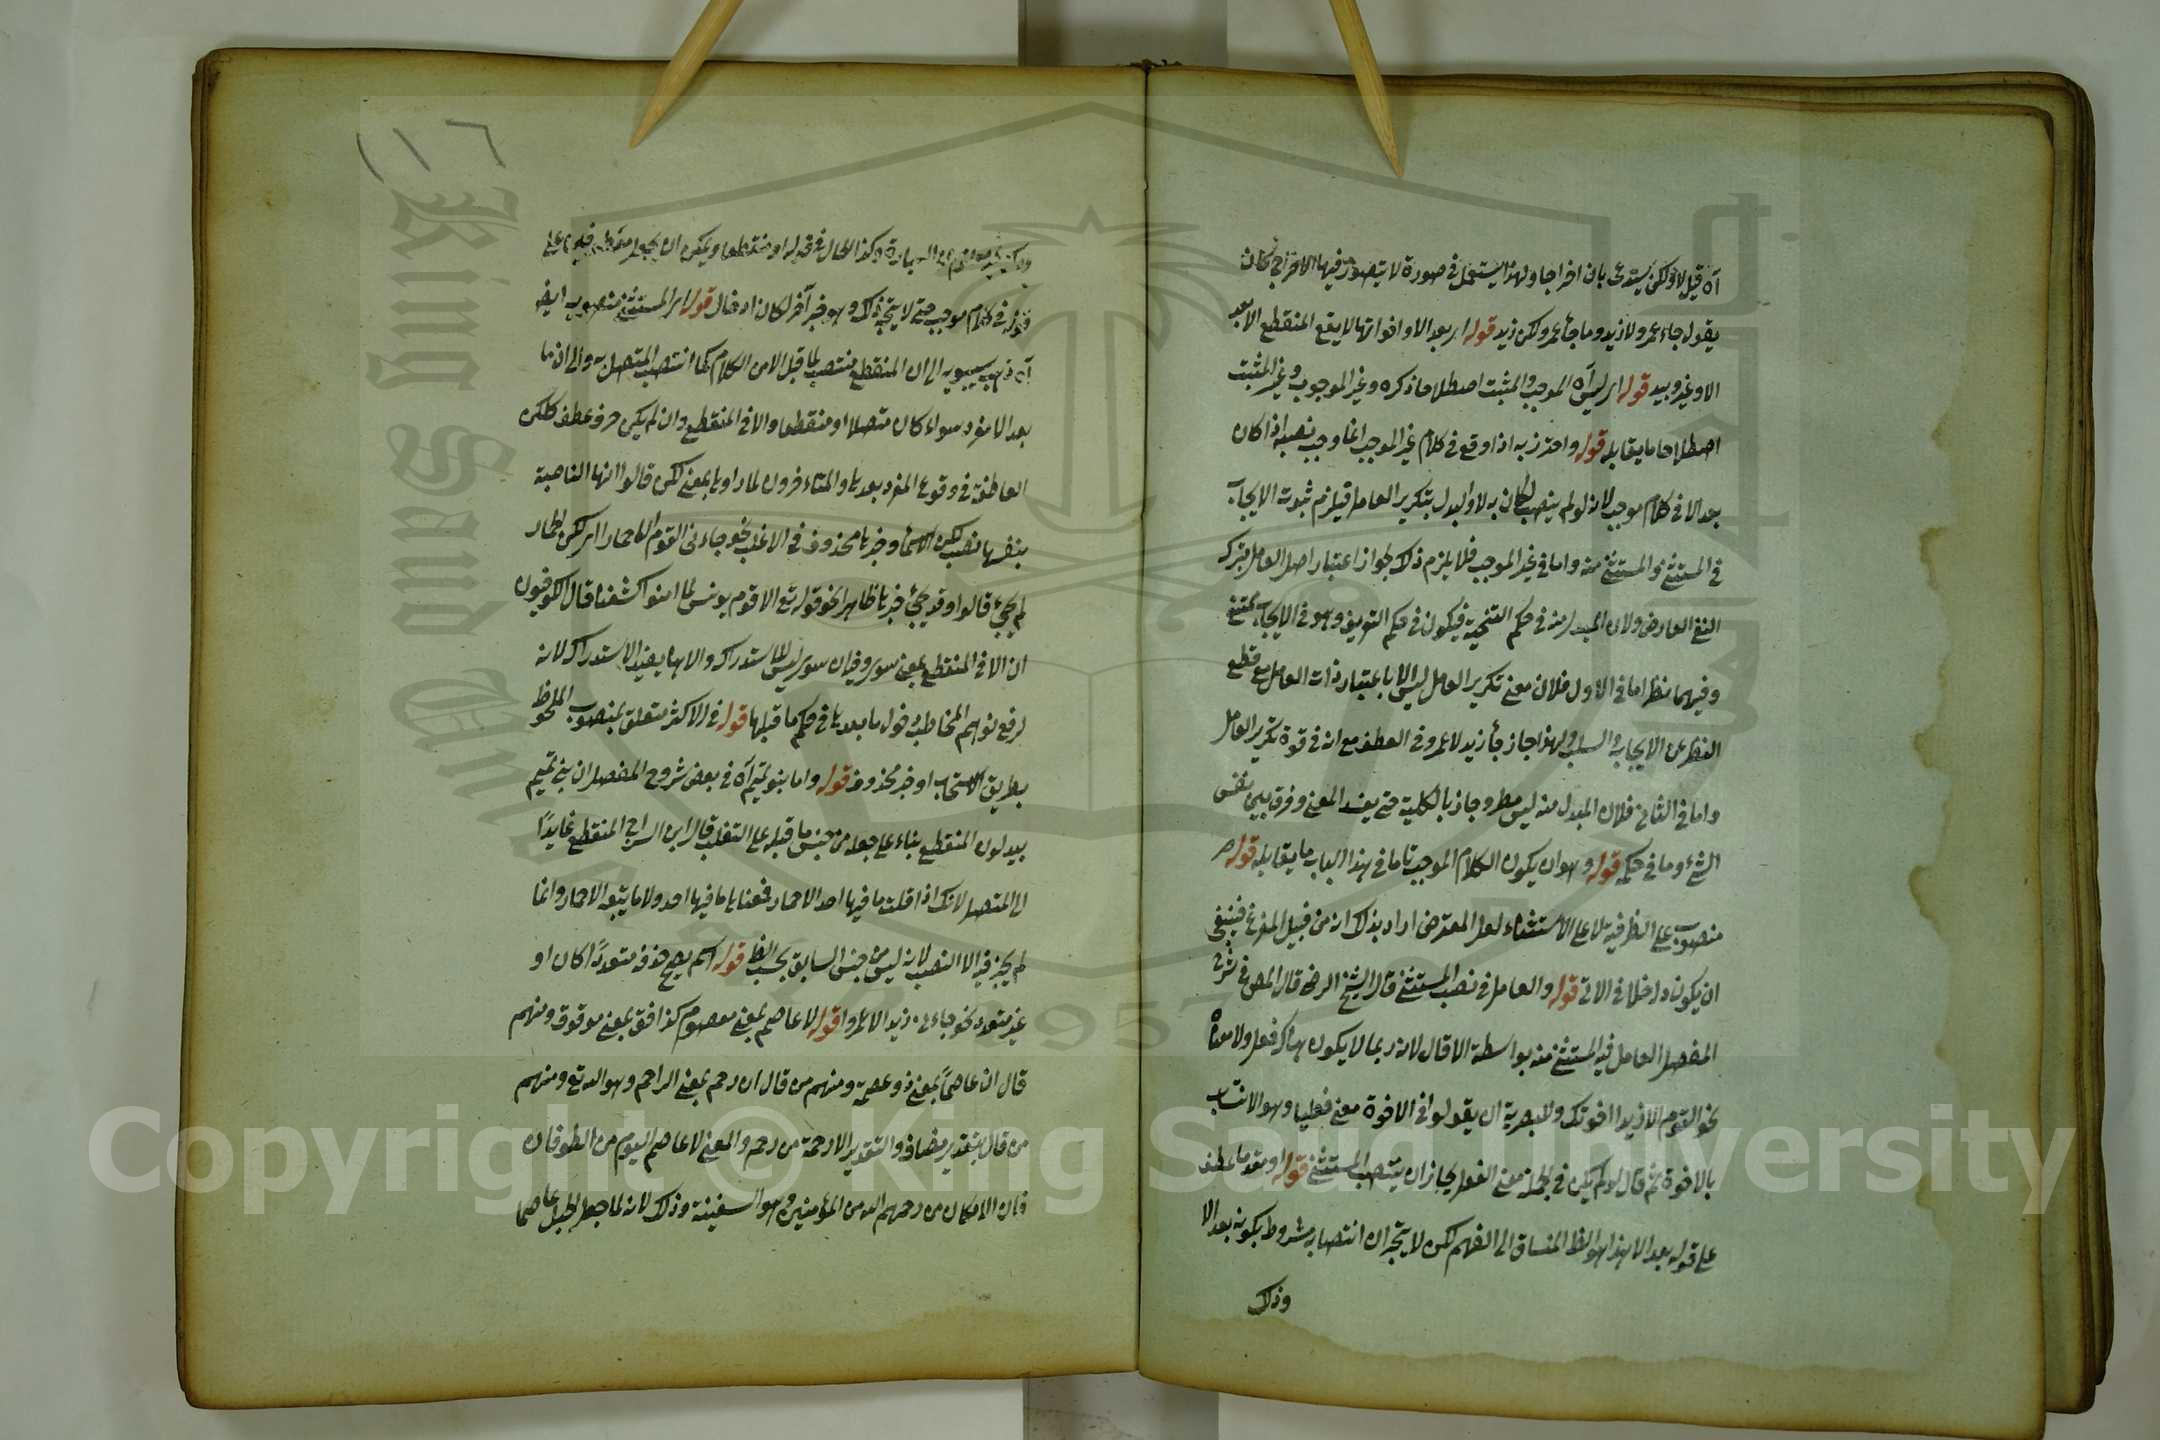 آه قيل لا ولكن يستدعى بان اخراجا ولهذا يستعمل في صورة لا يتصور فيها الاخراج كان
يقول جاء عمرو لا زيد وما جاء عمرو لكن زيد قوله اى بعد الا واخواتها لا يقع المنقطع الا بعد
الا وغير وبيد قوله اى ليس آه الموجب والمثبت اصطلاحا ذكره وغير الموجب وغير المثبت
اصطلاحا ما يقابله قوله واحترز به اذا وقع في كلام غير الموجب انما وجب نصبه اذا كان
بعد الا في كلام موجب لانه لو لم ينصب لكان بدلا والبدل بتكرير العامل فيلزم ثبوت الايجاب
في المستثنى والمستثنى منه واما في غير الموجب فلا يلزم ذلك لجواز اعتبار اصل العامل بترك
النفى العارض ولان المبدل منه في حكم التنحية فيكون في حكم التفريغ وهو في الايجاب ممتنع
وفيهما نظر اما في الاول فلان معنى تكرير العامل ليس الا باعتبار ذات العامل مع قطع
النظر عن الايجاب والسلب ولهذا جاز جاء زيد لا عمرو في العطف مع انه في قوة تكرير العامل
واما في الثانى فلان المبدل منه ليس مطروحا بالكلية حتى يفسد المعنى وفرق بين نفس
الشئ وما في حكمه قوله وهو ان يكون الكلام الموجب تاما في هذا الباب ما يقابله قوله
منصوب على الظرفية لا على الاستثناء لعل المعترض اراد بذلك انه من قبيل المفرغ فينبغى
ان يكون داخلا في الاتى قوله والعامل في نصب المستثنى قال الشيخ الرضى قال المص في شرح
المفصل العامل فيه المستثنى منه بواسطة الا قال لانه ربما لا يكون هناك فعل ولا معناه
نحو القوم الا زيدا اخوتك وللبصرية ان يقولوا في الاخوة معنى فعليا وهو الانتساب
بالاخوة ثم قال لو لم يكن في الجملة معنى الفعل لجاز ان ينتصب المستثنى قوله او مقدما عطف
على قوله بعد الا هذا هو الظ المنساق الى الفهم لكن لا يتجه ان انتصابه مشروط بكونه بعد الا
وذلك
١١٦
العبارة وكذا الحال في قوله او منقطعا ويمكن ان يجعل على
قوله في كلام موجب حتى لا يتجه ذلك وهو خبر آخر لكان او حال قوله اى المستثنى منصوب ايضا
آه ذهب سيبويه الى ان المنقطع منتصب بما قبل الا من الكلام كما انتصب المتصل به والى ان ما
بعد الا مفرد سواء كان متصلا او منقطعا والا في المنقطع وان لم يكن حرف عطف كلكن
العاطفة في وقوع المفرد بعدها والمتأخرون لما رأوها بمعنى لكن قالوا انها الناصبة
بنفسها نصب لكن الاسماء وخبرها محذوف في الاغلب نحو جاءنى القوم الا حمارا اى لكن الحمار
لم يجئ قالوا وقد يجئ خبرها ظاهرا نحو قوله تع الا قوم يونس لما آمنوا كشفنا قال الكوفيون
ان الا في المنقطع بمعنى سوى وفيه ان سوى ليس للاستدراك والا ههنا يفيد الاستدراك لانه
لرفع توهم المخاطب دخول ما بعدها في حكم ما قبلها قوله في الاكثر متعلق بمنصوب الملحوظ
بطريق الانسحاب او خبر محذوف قوله واما بنو تميم آه في بعض شروح المفصل ان بنى تميم
يبدلون المنقطع بناء على جعله من جنس ما قبله على التغليب قال ابن السراج المنقطع عائدا
الى المتصل لانك اذا قلت ما فيها احد الا حمار فمعناه ما فيها احد ولا ما يتبعه الا حمار وانما
لم يجز فيه الا النصب لانه ليس من جنس السابق بحسب الظ قوله اسم يصح حذفه متعددا كان او
غير متعدد نحو جاءنى زيد الا عمروا قوله لا عاصم بمعنى معصوم كدافق بمعنى مدفوق ومنهم
قال ان عاصما بمعنى ذو عصمة ومنهم من قال ان رحم بمعنى الراحم وهو الله تع ومنهم
من قال بتقدير مضاف والتقدير الا رحمة من رحم والمعنى لا عاصم اليوم من الطوفان
فان الا مكان من رحمهم الله من المؤمنين وهو السفينة وذلك لانه لما جعل الجبل عاصما
King Saud University
1957
Copyright © King Saud University